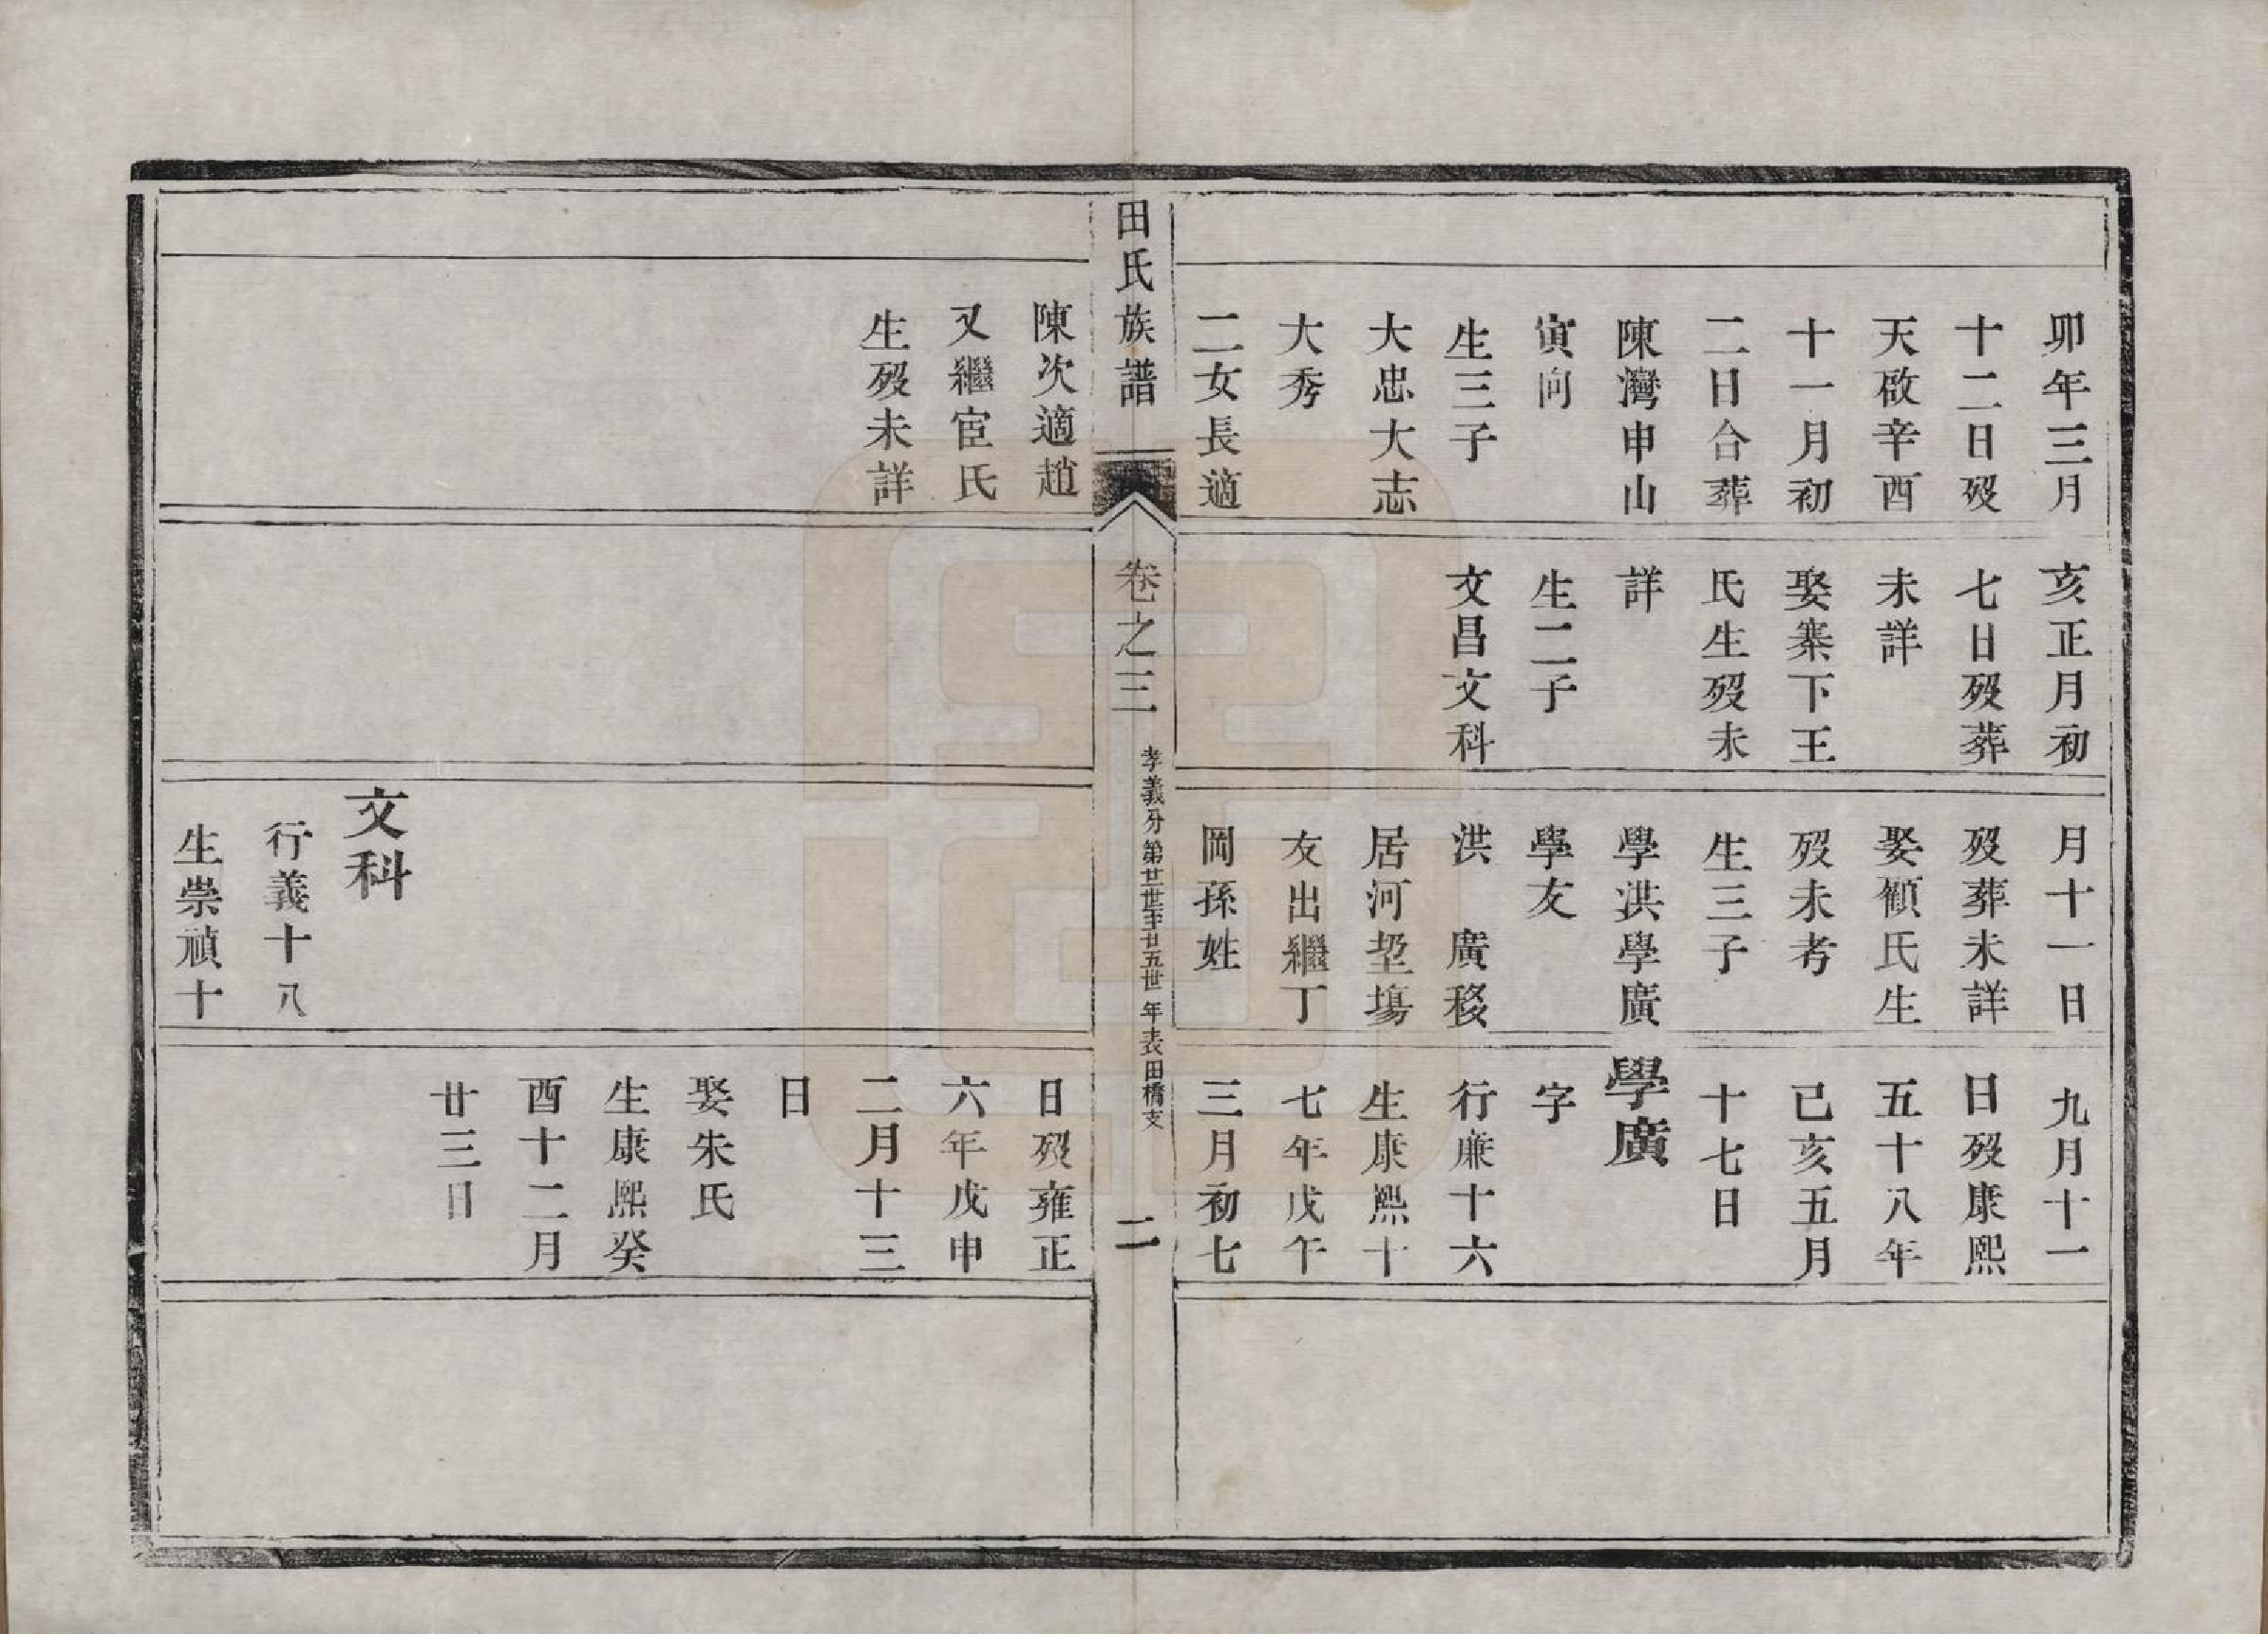 卯年三月
十二日歿
天啟辛酉
十一月初
二日合葬
陳灣申山
寅向
生三子
大忠大志
大秀
二女長適
亥正月初
七日歿葬
未詳
娶寨下王
氏生歿未
詳
生二子
文昌文科
月十一日
歿葬未詳
娶顧氏生
歿未考
生三子
學洪學廣
學友
洪 廣移
居河垩塲
友出繼丁
岡孫姓
九月十一
日歿康熙
五十八年
己亥五月
十七日
學廣
字
行廉十六
生康熙十
七年戊午
三月初七
田氏族譜
卷之三
孝義分第廿一世至廿五世年表田橋支
二
陳次適趙
又繼宦氏
生歿未詳
文科
行義十八
生崇禎十
日歿雍正
六年戊申
二月十三
日
娶朱氏
生康熙癸
酉十二月
廿三日